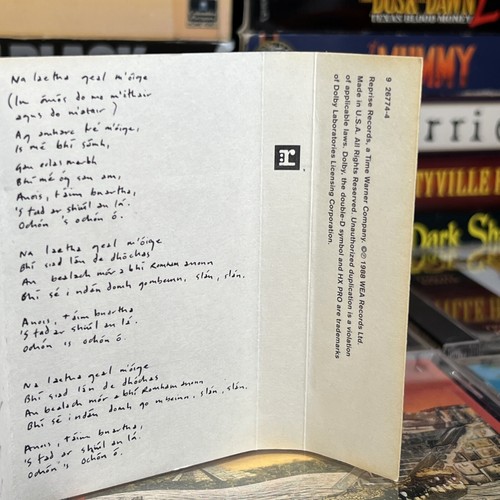 Na laetha geal m'óige
(In ómós do mo m'áthair
agus do m'atair)
Ag amharc tré m'óige,
Is mé bhí sámh,
Gan eolas marbh
Bhí mé óg san am,
Anois, táim buartha,
's fad ar shiúl an lá.
Ochón 's ochón ó.
Na laetha geal m'óige
Bhí siad lán de dhóchas
An bealach mór a bhí romham anonn
Bhí sé i ndán domh gombeinn, slán, slán.
Anois, táim buartha
's fad ar shiúl an lá.
Ochón is ochón ó.
Na laetha geal m'óige
Bhí siad lán de dhóchas
An bealach mór a bhí Romham anonn
Bhí sé i ndán domh go mbeinn, slán, slán.
Anois, táim buartha,
's fad ar shiúl an lá.
Ochón 's Ochón ó.
r
9 26774-4
Reprise Records, a Time Warner Company. ©℗ 1988 WEA Records Ltd.
Made in U.S.A. All Rights Reserved. Unauthorized duplication is a violation
of applicable laws. Dolby, the double-D symbol and HX PRO are trademarks
of Dolby Laboratories Licensing Corporation.
DUSK DAWN 2
TEXAS BLOOD MONEY
MUMMY